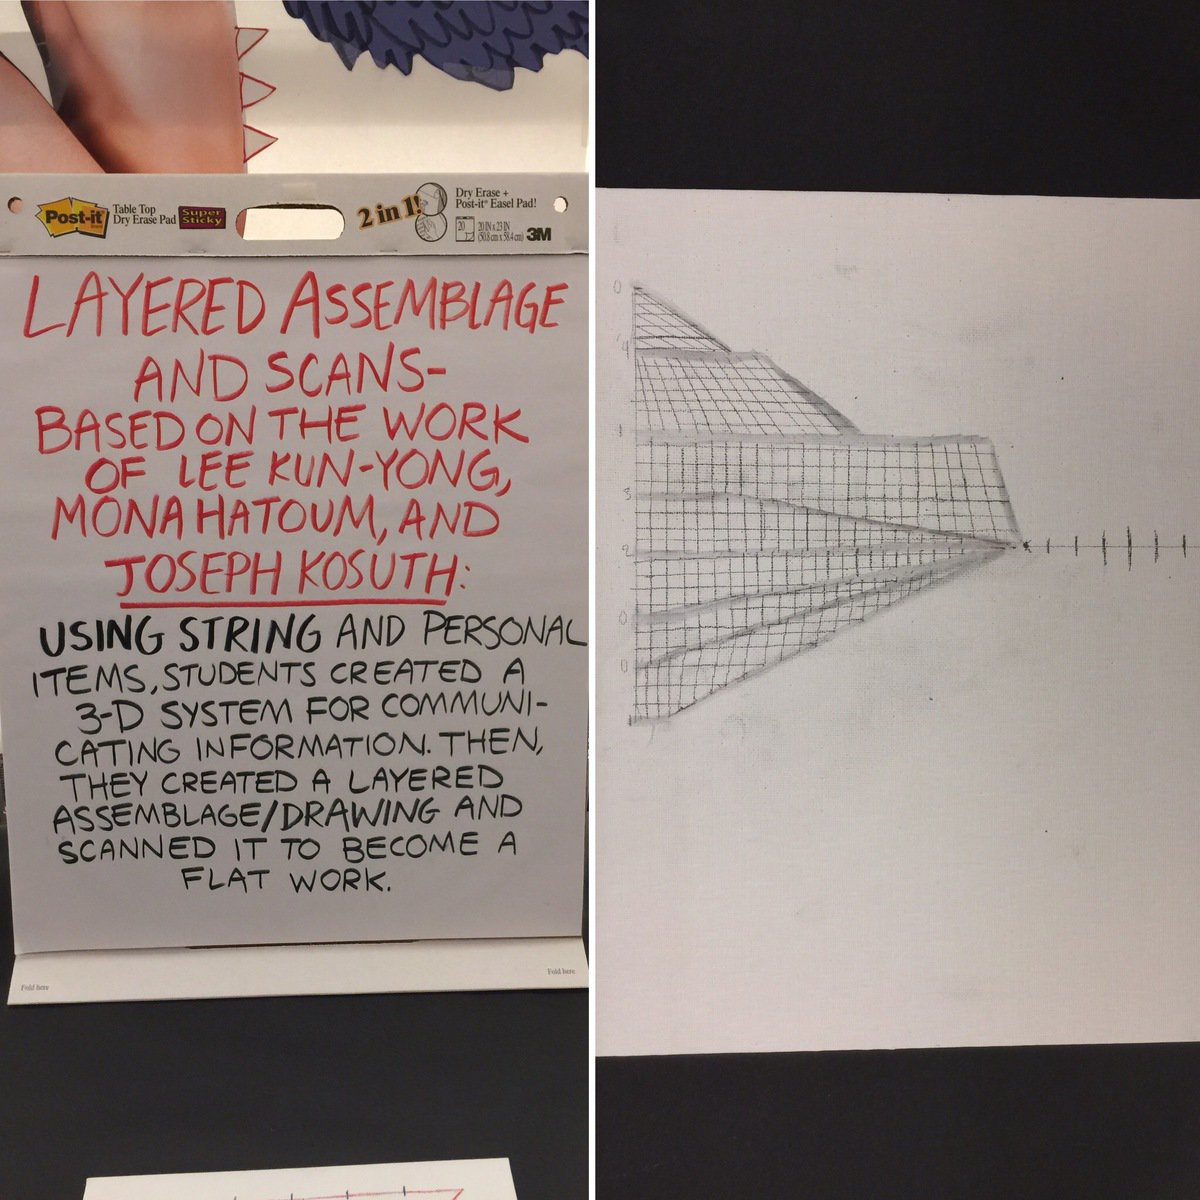 Post-it
Table Top
Dry Erase Pad
Super
Sticky
2 in 1!
Dry Erase +
Post-it® Easel Pad!
20
20 IN x 23 IN
(50.8 cm x 58.4 cm)
3M
LAYERED ASSEMBLAGE
AND SCANS-
BASED ON THE WORK
OF LEE KUN-YONG,
MONA HATOUM, AND
JOSEPH KOSUTH:
USING STRING AND PERSONAL
ITEMS, STUDENTS CREATED A
3-D SYSTEM FOR COMMUNI-
CATING INFORMATION. THEN,
THEY CREATED A LAYERED
ASSEMBLAGE/DRAWING AND
SCANNED IT TO BECOME A
FLAT WORK.
Fold here
Fold here